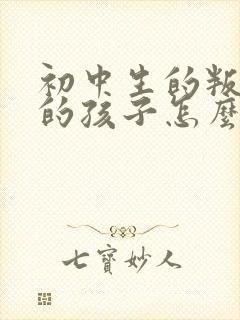 初中生的叛
的孩子怎麼
七寶妙人